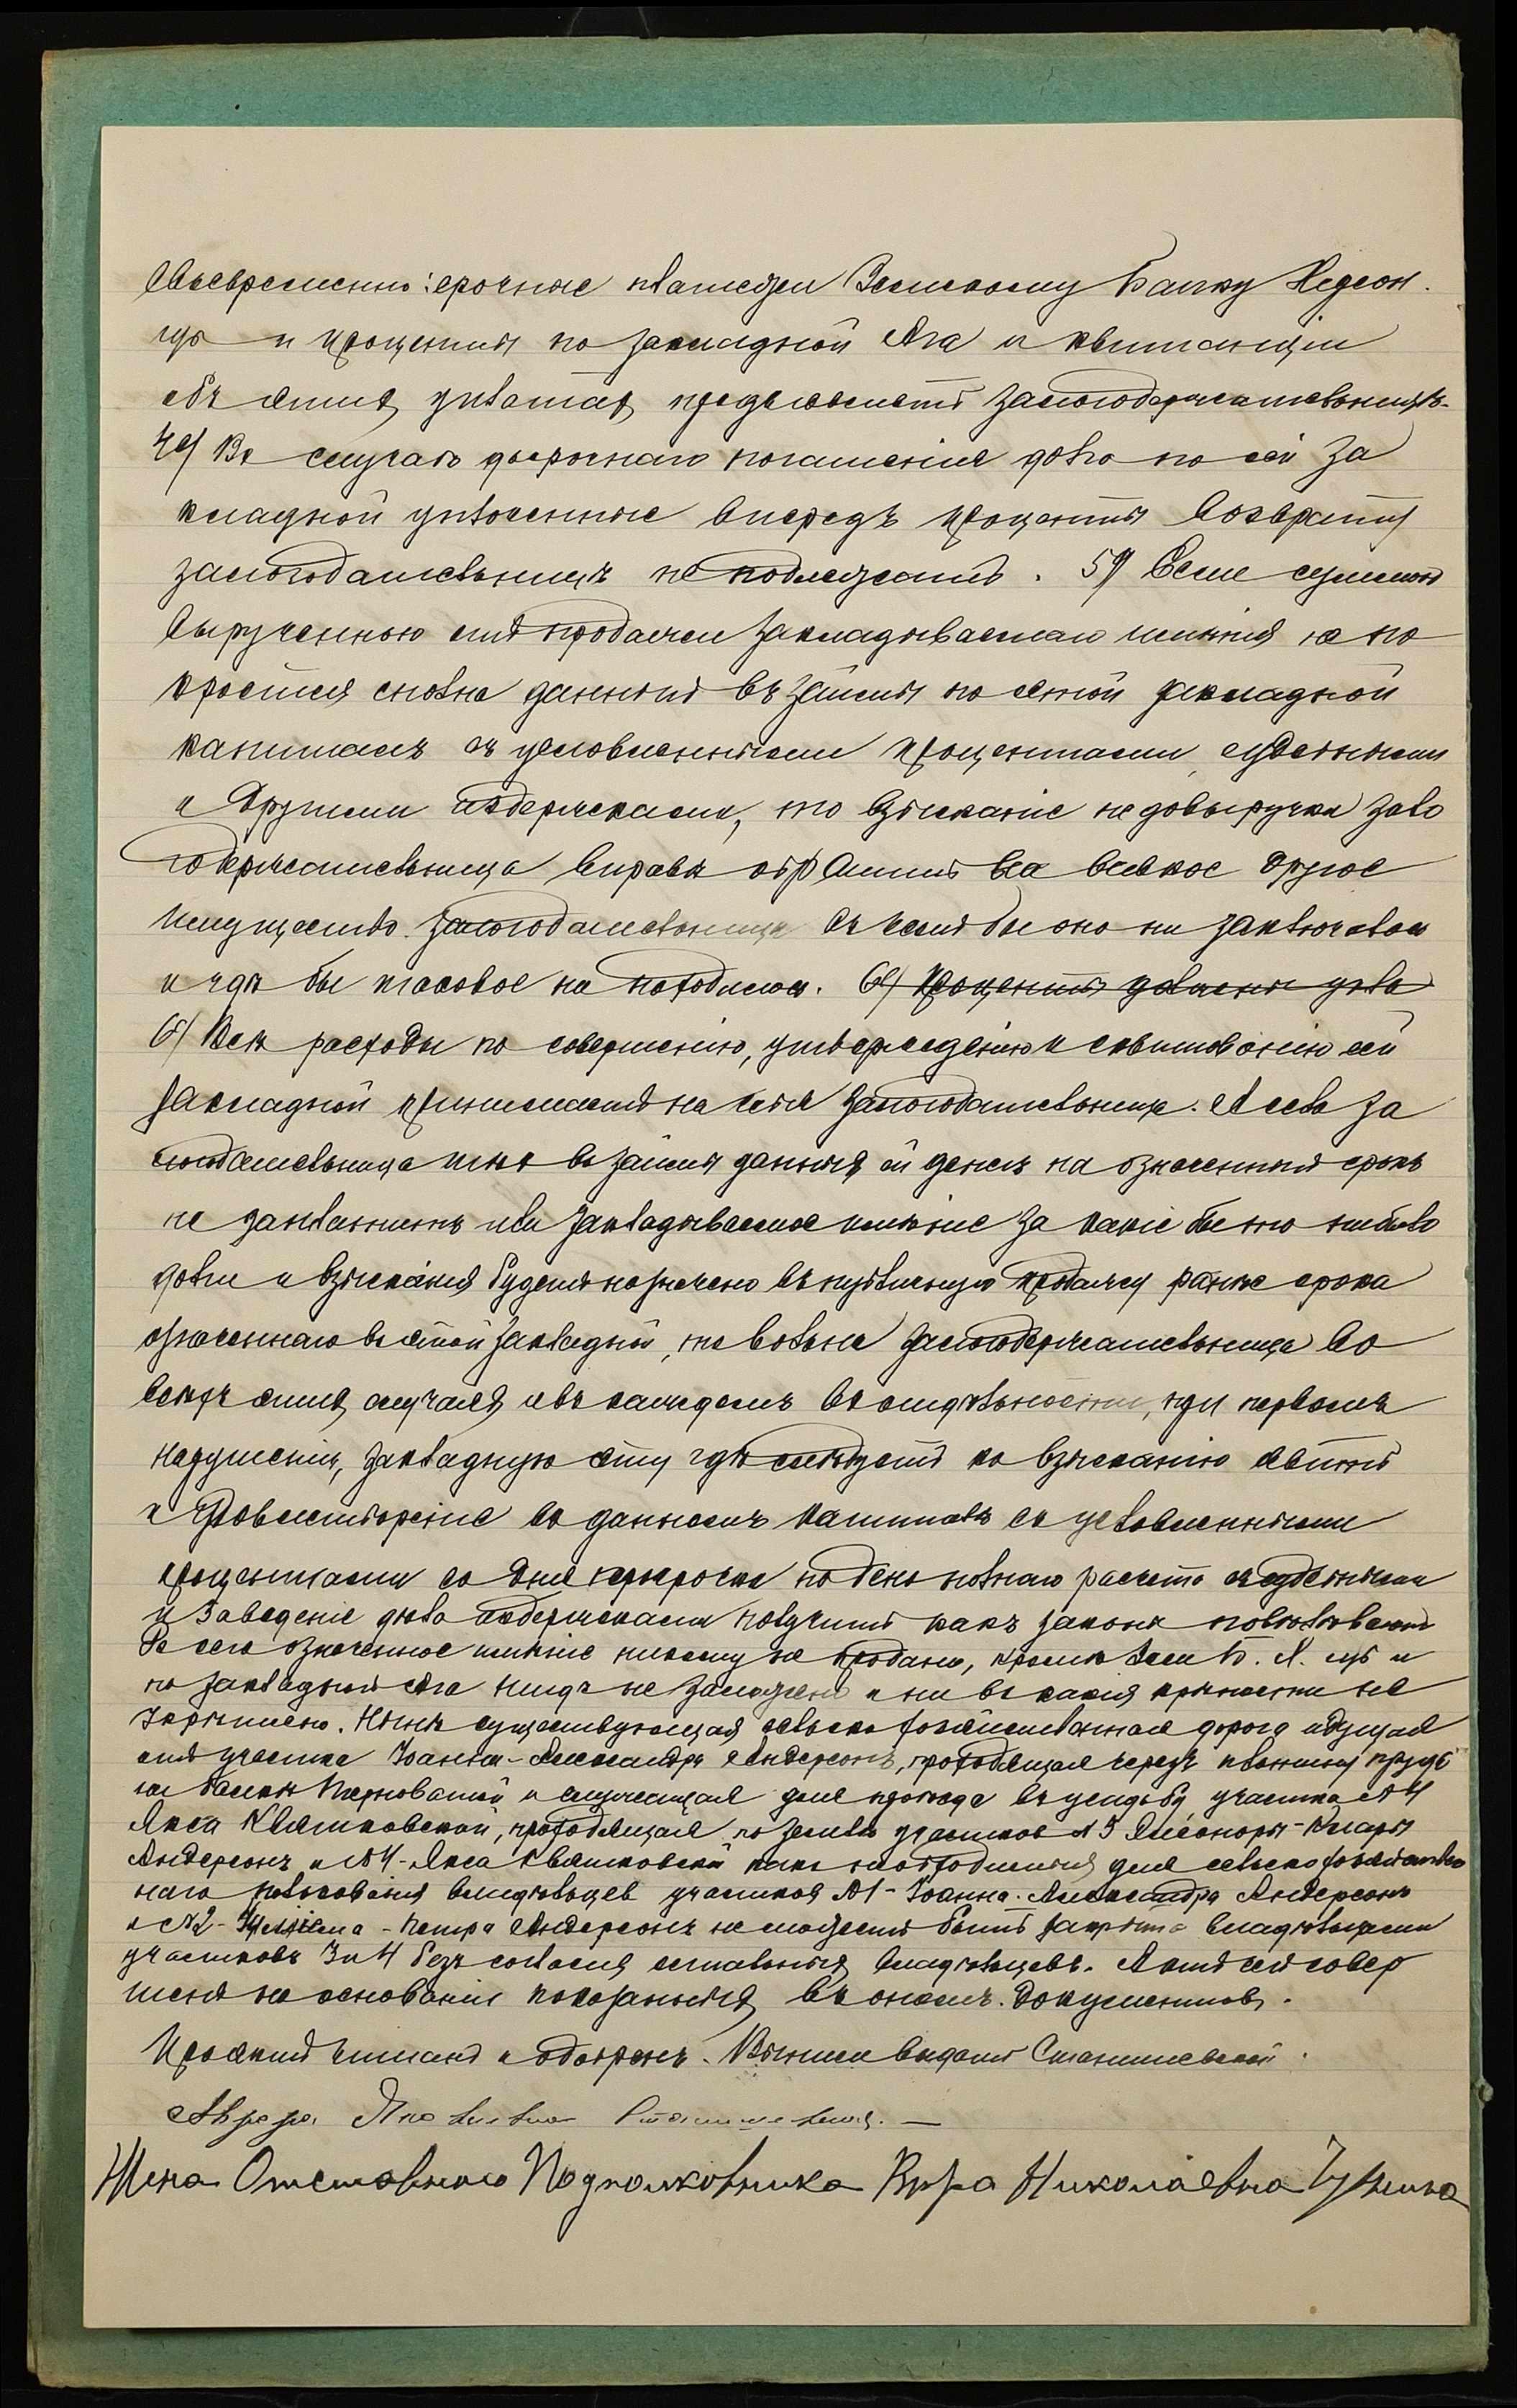 своевременно срочные платежи Земскому Банку Херсон.
губ и проценты по закладной Ага и квитанціи
объ этихъ уплатахъ предъявлять залогодержательницѣ.
4е/ Въ случаѣ досрочнаго погашенія долга по сей за
кладной уплоченные впередъ проценты возврату
залогодательницѣ не подлежатъ. 5е/ Если суммою
вырученною отъ продажи закладываемаго имѣнія не по
кроется сполна данный въ займы по этой закладной
капиталъ съ условленными процентами, судебными
и другими издержками, то взысканіе недовыручки зало
годержательница вправѣ обратить на всякое другое
имущество залогодательницы въ чемъ бы оно ни заключалось
и гдѣ бы таковое не находилось. 6е/ Проценты должны упла
6/ Всѣ расходы по совершенію, утвержденію и сквитованію сей
закладной принимаетъ на себя залогодательница. А если за
логодательница мнѣ въ займы данныхъ ей денегъ на означенный срокъ
не заплатитъ или закладываемое имѣніе за какіе бы то ни было
долги и взысканія будетъ назначено въ публичную продажу ранѣе срока
означеннаго въ этой закладной, то вольна залогодержательница во
всѣхъ этихъ случаяхъ и въ каждомъ въ отдѣльности, при первомъ
нарушеніи, закладную эту гдѣ слѣдуетъ ко взысканію явить
и удовлетвореніе въ данномъ капиталѣ съ условленными
процентами со дня просрочки по день полнаго расчета съ судебными
и за веденіе дѣла издержками получить какъ законы повелѣваютъ
До сего означенное имѣніе никому не продано, кромѣ Зем Б. Х. губ и
по закладной Ага нигдѣ не заложено и ни въ какія крѣпости не
укрѣплено. Нынѣ существующая сельско хозяйственная дорога идущая
отъ участка Іоанна-Александра Андерсонъ, проходящая черезъ плотину пруда
на балкѣ Терноватой и служащая для проѣзда въ усадьбу участка №4
Якса Квятковской, проходящая по землѣ участковъ №3 Элеоноры-Клары
Андерсонъ и №4-Якса Квятковской какъ необходимая для сельскохозяйствен
наго пользованія владѣльцевъ участковъ №1-Іоанна-Александра Андерсонъ
и №2- Вильгельма-Петра Андерсонъ не можетъ быть закрыта владѣльцами
участковъ 3 и 4 безъ согласія остальныхъ владѣльцевъ. Актъ сей совер
шенъ на основаніи показанныхъ въ ономъ документовъ.
Проектъ читанъ и одобренъ. Выпись выдать Станишевской.
Станишевская.
Жена Отставного Подполковника Вѣра Николаевна